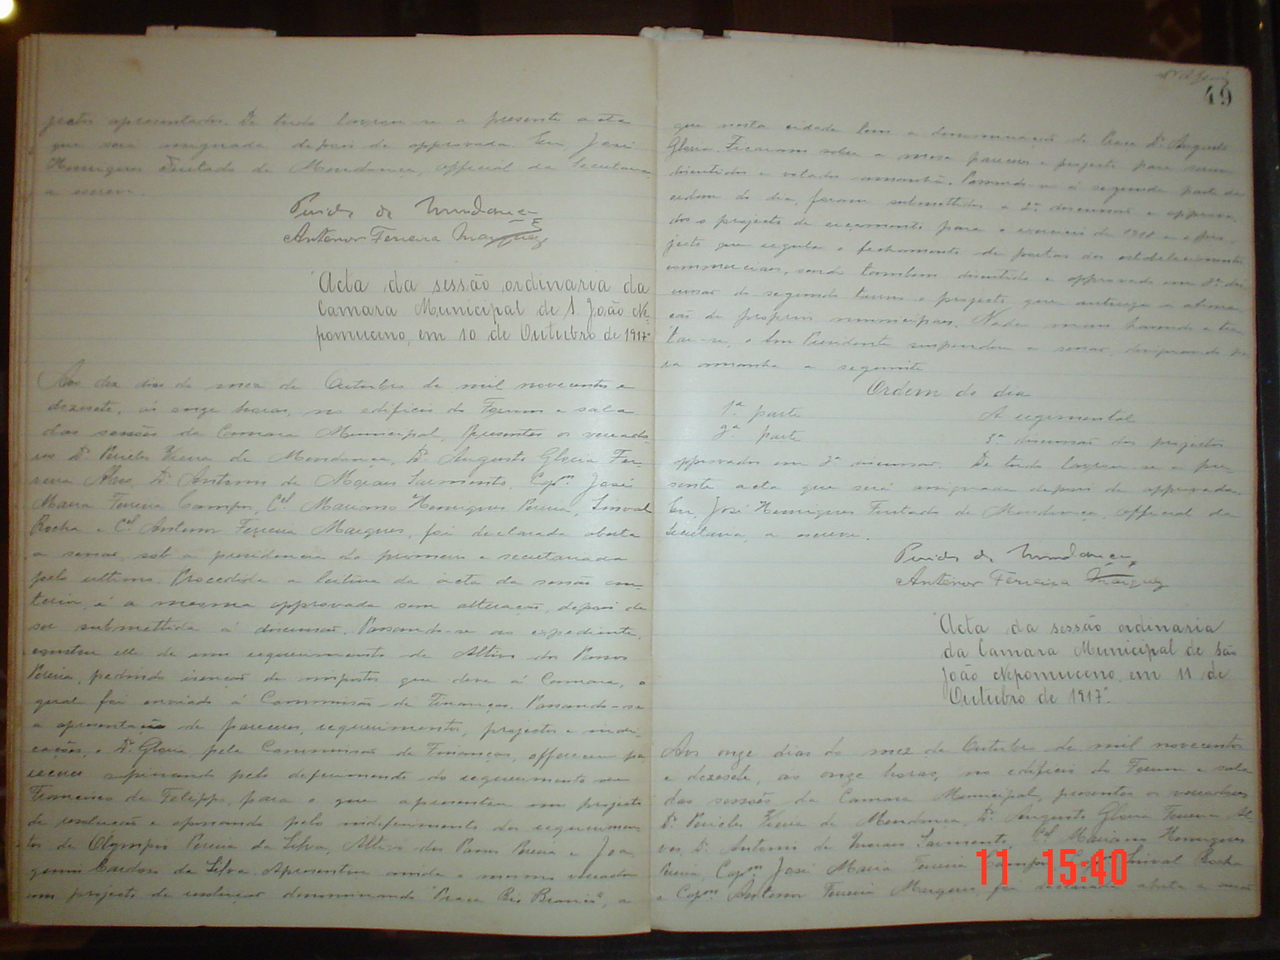 jectos apresentados. De tudo lavrou-se a presente acta
que será assignada depois de approvada. Eu, José
Henriques Furtado de Mendonça, official da Secretaria
a escrevi.
Pericles de Mendonça
Antenor Ferreira Marques
Acta da sessão ordinaria da
Camara Municipal de S. João Ne-
pomuceno, em 10 de Outubro de 1917
Aos dez dias do mez de Outubro de mil novecentos e
dezesete, ás onze horas, no edificio do Forum e sala
das sessões da Camara Municipal, presentes os vereado-
res Dr. Pericles Vieira de Mendonça, Dr. Augusto Gloria Fer-
reira Alves, Dr. Antonio de Moraes Sarmento, Capm José
Maria Ferreira Campos, Cel Mariano Henriques Pereira, Sinval
Rocha e Cel Antenor Ferreira Marques, foi declarada aberta
a sessão, sob a presidencia do primeiro e secretariada
pelo ultimo. Procedida a leitura da acta da sessão an-
terior, é a mesma approvada sem alteração, depois de
ser submettida á discussão. Passando-se ao expediente,
constou elle de um requerimento de Altivo dos Passos
Pereira, pedindo isenção de impostos que deve á Camara, o
qual foi enviado á Commissão de Finanças. Passando-se
a apresentação de pareceres, requerimentos, projectos e indi-
cações, o Dr. Gloria pela Commissão de Finanças, offereceu pa-
receres opinando pelo deferimento do requerimento de
Francisco de Felipp, para o que apresentou um projecto
de resolução e opinando pelo indeferimento dos requerimen-
tos de Olympio Pereira da Silva, Altivo dos Passos Pereira e Joa-
quim Cardoso da Silva. Apresentou ainda o mesmo vereador
um projecto de resolução denominando "Praça Rio Branco", a
49
que nesta cidade tem a denominação de Praça Dr. Augusto
Gloria. Ficaram sobre a mesa pareceres e projecto para serem
discutidos e votados amanhã. Passando-se á segunda parte da
ordem do dia, foram submettidos á 2ª discussão e approva-
dos o projecto de orçamento para o exercicio de 1918 e o pro-
jecto que regula o fechamento de portas dos estabelecimentos
commerciaes, sendo tambem discutido e approvado em 2ª dis-
cussão do segundo turno o projecto que autoriza a aliena-
ção de proprios municipaes. Nada mais havendo a tra-
tar-se, o Snr Presidente suspendeu a sessão, designando pa-
ra amanhã a seguinte
Ordem do dia
1ª parte A regimental
2ª parte 3ª discussão dos projectos
approvados em 2ª discussão. De tudo lavrou-se a pre-
sente acta que será assignada depois de approvada.
Eu, José Henriques Furtado de Mendonça, official da
Secretaria, a escrevi.
Pericles de Mendonça
Antenor Ferreira Marques
Acta da sessão ordinaria
da Camara Municipal de São
João Nepomuceno, em 11 de
Outubro de 1917.
Aos onze dias do mez de Outubro de mil novecentos
e dezesete, as onze horas, no edificio do Forum e sala
das sessões da Camara Municipal, presentes os vereadores
Dr. Pericles Vieira de Mendonça, Dr. Augusto Gloria Ferreira Al-
ves, Dr. Antonio de Moraes Sarmento, Cel Mariano Henriques
Pereira, Capm José Maria Ferreira Campos, Sinval Rocha
e Capm Antenor Ferreira Marques, foi declarada aberta a sessão
11 15:40